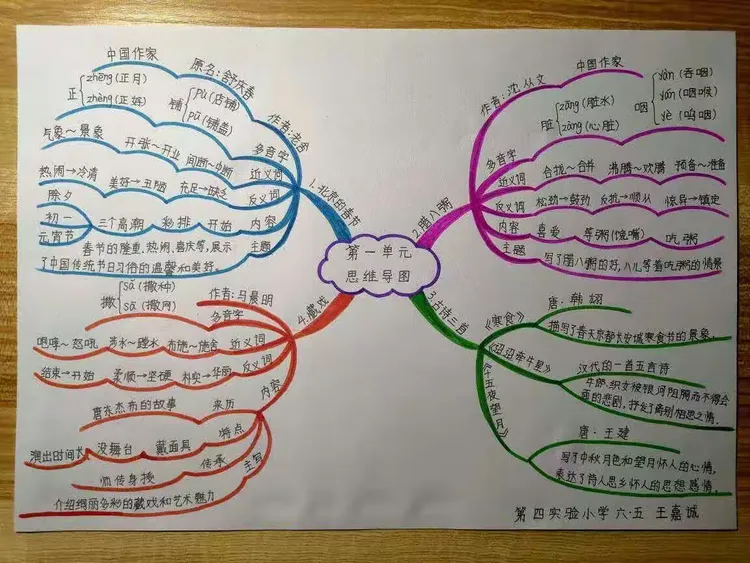 第一单元
思维导图
1.北京的春节
作者:老舍
原名:舒庆春
中国作家
多音字
正
zhēng(正月)
zhèng(正好)
铺
pù(店铺)
pū(铺盖)
近义词
气象~景象
开张~开业
间断~中断
反义词
热闹→冷清
美好→丑陋
充足→缺乏
内容
除夕
初一
元宵节
三个高潮
秒排
开始
主题
春节的隆重、热闹、喜庆等,展示
了中国传统节日习俗的温馨和美好。
2.腊八粥
作者:沈从文
中国作家
多音字
脏
zāng(脏水)
zàng(心脏)
咽
yàn(吞咽)
yān(咽喉)
yè(呜咽)
近义词
合拢~合并
沸腾~欢腾
预备~准备
反义词
松劲→鼓劲
反抗→顺从
惊异→镇定
内容
喜爱
等粥(馋嘴)
吃粥
主题
写了腊八粥的好,八儿等着吃粥的情景
3.古诗三首
《寒食》
唐:韩翃
描写了春天京都长安城寒食节的景象。
《迢迢牵牛星》
汉代的一首五言诗
牛郎、织女被银河阻隔而不得会
面的悲剧,抒发了离别相思之情。
《十五夜望月》
唐:王建
写了中秋月色和望月怀人的心情,
表达了诗人思乡怀人的思想感情。
4.藏戏
作者:马晨明
多音字
撒
sǎ(撒种)
sā(撒网)
近义词
咆哮~怒吼
涉水~蹚水
布施~施舍
反义词
结束→开始
柔顺→坚硬
朴实→华丽
内容
来历
唐东杰布的故事
特点
戴面具
没舞台
演出时间长
传承
师传身授
主写
介绍绚丽多彩的藏戏和艺术魅力
第四实验小学 六·五 王嘉诚